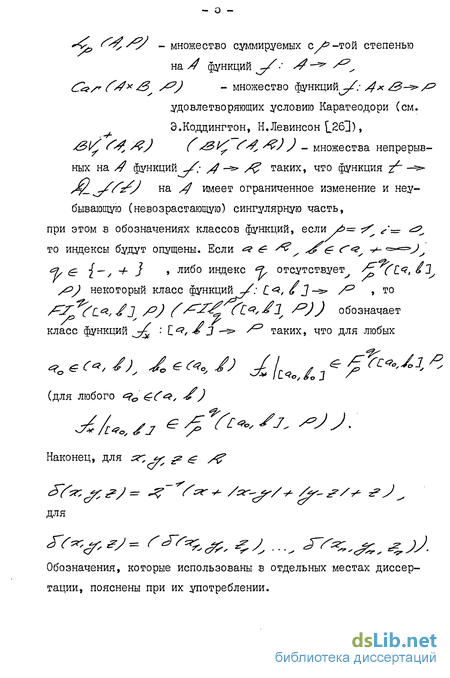 - 5 -
Lₚ(A,P) - множество суммируемых с p-той степенью
на A функций f: A → P,
Car(A×B, P) - множество функций f: A×B → P
удовлетворяющих условию Каратеодори (см.
Э.Коддингтон, Н.Левинсон [26]),
BV₁⁺(A,R) (BV₁⁻(A,R)) - множества непрерыв-
ных на A функций f: A → R таких, что функция t →
f(t) на A имеет ограниченное изменение и неу-
бывающую (невозрастающую) сингулярную часть,
при этом в обозначениях классов функций, если p=1, i=0,
то индексы будут опущены. Если a ∈ R, b ∈ (a, +∞),
q ∈ {-, +} , либо индекс q отсутствует, F_p^q([a,b],
P) некоторый класс функций f: [a,b] → P , то
FI_p^q([a,b], P) (FIb_q^p([a,b], P)) обозначает
класс функций f_* : [a,b] → P таких, что для любых
a₀ ∈ (a,b), b₀ ∈ (a₀,b) f_*|[a₀,b₀] ∈ F_p^q([a₀,b₀], P,
(для любого a₀ ∈ (a,b)
f_*|[a₀,b] ∈ F_p^q([a₀,b], P)).
Наконец, для x,y,z ∈ R
б(x,y,z) = 2⁻¹(x + |x-y| + |y-z| + z),
для
б(x,y,z) = (б(x₁,y₁,z₁), ..., б(xₙ,yₙ,zₙ)).
Обозначения, которые использованы в отдельных местах диссер-
тации, пояснены при их употреблении.
dsLib.net
библиотека диссертаций